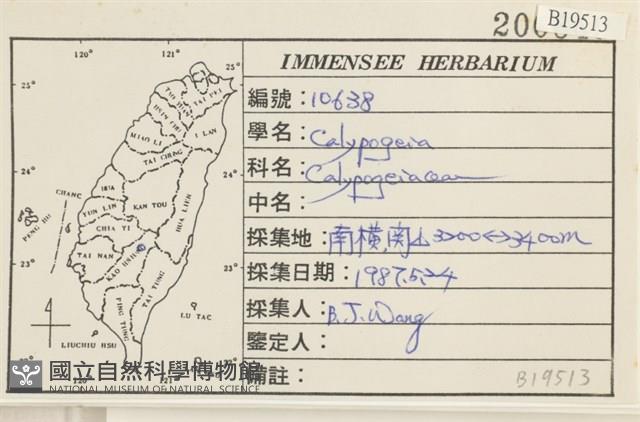 B19513
IMMENSEE HERBARIUM
編號：10638
學名：Calypogeia
科名：Calypogeiaceae
中名：
採集地：南橫,関山3200↔3400m
採集日期：1987.5.24
採集人：B.J.Wang
鑒定人：
備註：
B19513
120° 121°
25° 25°
TAI PEI
I LAN
MIAO LI
TAI CHUNG
24° 24°
CHANG
HUA
YUN LIN
KAN TOU
HUA LIEN
PENG HU
CHIA YI
TAI NAN
KAO HSIUNG
TAI TUNG
23° 23°
PING TUNG
LU TAO
LIUCHIU HSU
22°
120° 121°
國立自然科學博物館
NATIONAL MUSEUM OF NATURAL SCIENCE